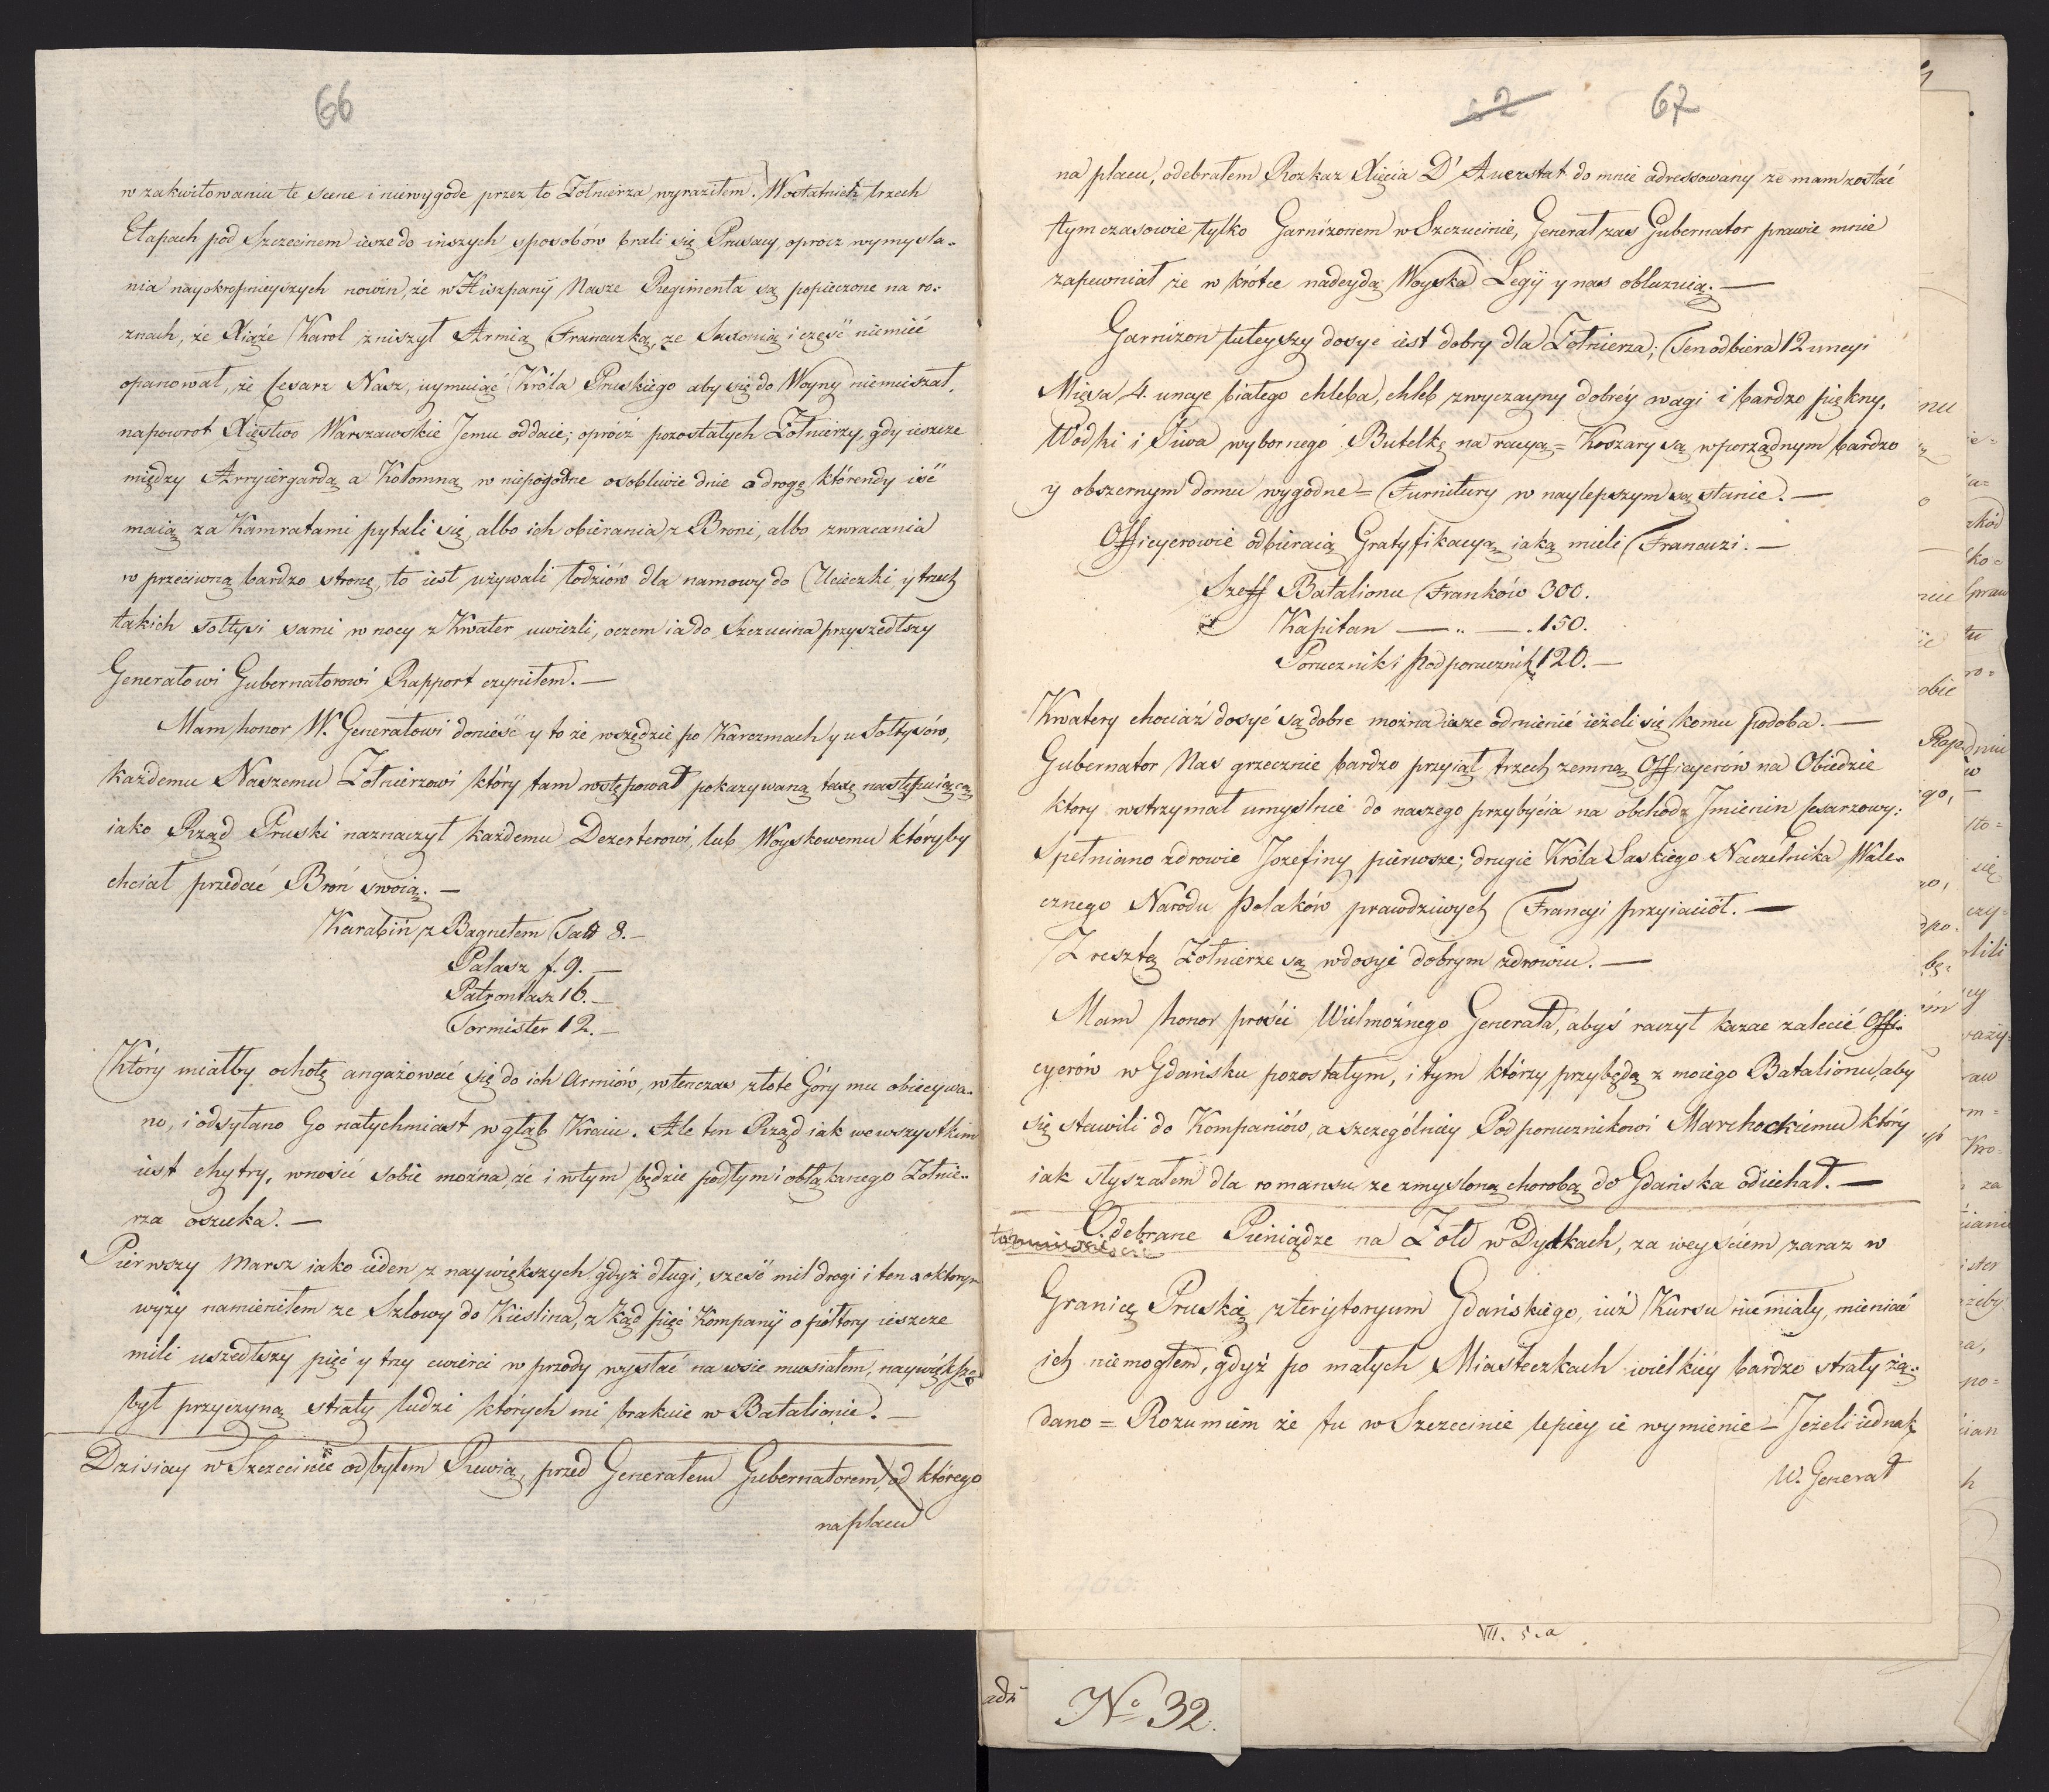 66
w zakwitowaniu te scene i niewygode przez to Zołnierza wyraziłem. Wostatnich trzech
Etapach pod Szczecinem iesze do inszych sposobów brali się Prusacy, oprocz wymysla-
nia nayokropnieyszych nowin, że w Hiszpanÿ Nasze Regimenta są popieczone na ro-
znach, że Xiąże Karol zniszył Armią Francuzką, ze Saxonią i część niemiéć
opanował, że Cesarz Nasz, uymuiąć Króla Pruskiego aby się do Woyny niemieszał,
napowrot Xięstwo Warszawskie Jemu oddaie; oprócz pozostałych Zołnierzy, gdy ieszcze
między Arryiergardą a Kolomną w niepogodne osobliwie dnie o drogę którendy iść
maią za Kamratami pytali się, albo ich obierania z Broni, albo zwracania
w przeciwną bardzo stronę, to iest używali łodziów dla namowy do Ucieczki y trzech
takich Sołtysi sami w nocy z Kwater uwiezli, oczem ia do Szczucina przyszedłszy
Generałowi Gubernatorowi Rapport czyniłem. —
Mam honor W. Generałowi donieść y to że wszędzie po Karczmach y u Sołtysów,
każdemu Naszemu Zołnierzowi który tam wstępował pokazywaną taxę następuiącą
iako Rząd Pruski naznaczył każdemu Dezerterowi, lub Woyskowemu któryby
chciał przedać Broń swoią. —
Karabin z Bagnetem Tall 8. —
Palasz f. 9. —
Patrontasz 16. —
Tornister 12. —
Który miałby ochotę angażować się do ich Armiów, wtenczas złote Góry mu obiecywa-
no, i odsyłano Go natychmiast w głąb Kraiu. Ale ten Rząd iak we wszystkim
iest chytry, wnosić sobie można, że i wtym będzie podłym i obłąkanego Zołnie-
rza oszuka. —
Pierwszy Marsz iako ieden z naywiększych gdyż długi, sześć mil drogi i ten o ktorym
wyży namieniłem ze Szlowy do Kieslina, z kąd pięć Kompanÿ o półtory ieszcze
mili uszedłszy pięć y trzy ćwierci w przody wysłać na wsie musiałem, naywiększą
był przyczyną straty ludzi których mi brakuie w Batalionie. —
Dzisiay w Szczecinie odbyłem Rewią, przed Generałem Gubernatorem, od którego
na placu
2 67
na placu, odebrałem Rozkaz Xięcia D'Auerstat do mnie adressowany ze mam zostać
tym czasowie tylko Garnizonem w Szczucinie, Generał zas Gubernator prawie mnie
zapewniał że w krótce nadeydą Woyska Legÿ y nas obluzuią. —
Garnizon tuteyszy dosyc iest dobry dla Zołnierza; Ten odbiera 12 uncyi
Mięsa, 4. uncye białego chleba, chleb zwyczayny dobréy wagi i bardzo piękny,
Wodki i Piwa wybornego Butelkę na racyą = Koszary są wporządnym bardzo
y obszernym domu wygodne = Furnitury w naylepszym są stanie. —
Officyerowie odbieraią Gratyfikacyą iaką mieli Francuzi. —
Szeff Batalionu Franków 300.
Kapitan — „ — „ 150.
Porucznik i Podporucznik 120. —
Kwatery chociaż dosyć są dobre można iesze odmienić ieżeli się komu podoba. —
Gubernator Nas grzecznie bardzo przyiął trzech zemną Officyerów na Obiedzie
ktory wstrzymał umyslnie do naszego przybycia na obchod Jmienin Cesarzowy:
Spełniano zdrowie Jozefiny pierwsze; drugie Króla Saskiego Naczelnika Wale-
cznego Narodu Polaków prawdziwych Francyi przyiaciół. —
Z resztą Zołnierze są w dosyć dobrym zdrowiu. —
Mam honor prosić Wielmożnego Generała, abyś raczył kazac zalecić Offi-
cyerów w Gdańsku pozostałym, i tym którzy przybędą z moiego Batalionu, aby
się stawili do Kompaniów, a szczególniey Podporucznikowi Marchockiemu który
iak słyszałem dla romansu ze zmysloną chorobą do Gdańska odiechał. —
Odebrane Pieniądze na Zołd w Dytkach, za weyściem zaraz w
Granicę Pruską z terytoryum Gdańskiego, iuż Kursu niemiały, mieniać
ich niemogłem, gdyż po małych Miasteczkach wielkiey bardzo straty żą-
dano = Rozumiem że tu w Szczecinie lepiey ie wymienie = Jeżeli iednak
W. Generał
VII. 5. a
No 32.